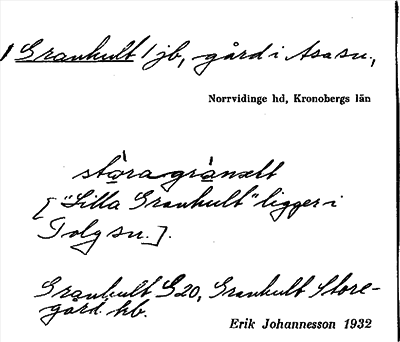 1 Grankult 1 jb, gård i Asa sn,
Norrvidinge hd, Kronobergs län
stòra grànelt
["Lilla Grankult" ligger i
Tolg sn.].
Grankult G20, Grankult Store-
gård hb.
Erik Johannesson 1932